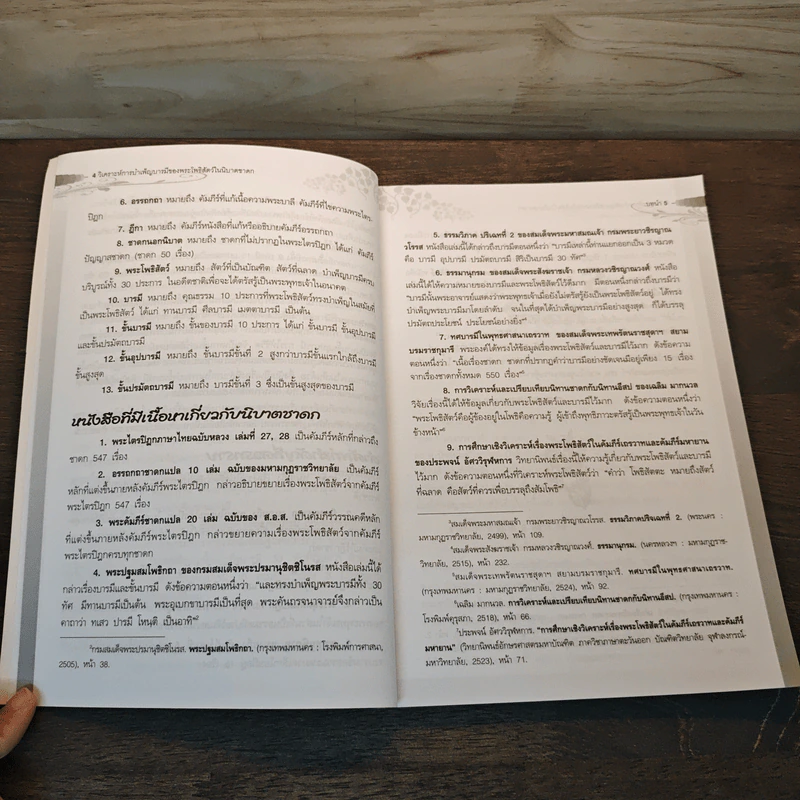 4 วิเคราะห์การบำเพ็ญบารมีของพระโพธิสัตว์ในนิบาตชาดก
6. อรรถกถา หมายถึง คัมภีร์ที่แก้เนื้อความพระบาลี คัมภีร์ที่ไขความพระไตร-
ปิฎก
7. ฎีกา หมายถึง คัมภีร์หนังสือที่แก้หรืออธิบายคัมภีร์อรรถกถา
8. ชาดกนอกนิบาต หมายถึง ชาดกที่ไม่ปรากฏในพระไตรปิฎก ได้แก่ คัมภีร์
ปัญญาสชาดก (ชาดก 50 เรื่อง)
9. พระโพธิสัตว์ หมายถึง สัตว์ที่เป็นบัณฑิต สัตว์ที่ฉลาด บำเพ็ญบารมีครบ
บริบูรณ์ทั้ง 30 ประการ ในอดีตชาติเพื่อจะได้ตรัสรู้เป็นพระพุทธเจ้าในอนาคต
10. บารมี หมายถึง คุณธรรม 10 ประการที่พระโพธิสัตว์ทรงบำเพ็ญในสมัยที่
เป็นพระโพธิสัตว์ ได้แก่ ทานบารมี ศีลบารมี เมตตาบารมี เป็นต้น
11. ขั้นบารมี หมายถึง ขั้นของบารมี 10 ประการ ได้แก่ ขั้นบารมี ขั้นอุปบารมี
และขั้นปรมัตถบารมี
12. ขั้นอุปบารมี หมายถึง บารมีขั้นที่ 2 สูงกว่าบารมีขั้นแรกใกล้ถึงบารมี
ขั้นสูงสุด
13. ขั้นปรมัตถบารมี หมายถึง บารมีขั้นที่ 3 ซึ่งเป็นขั้นสูงสุดของบารมี
หนังสือที่มีเนื้อหาเกี่ยวกับนิบาตชาดก
1. พระไตรปิฎกภาษาไทยฉบับหลวง เล่มที่ 27, 28 เป็นคัมภีร์หลักที่กล่าวถึง
ชาดก 547 เรื่อง
2. อรรถกถาชาดกแปล 10 เล่ม ฉบับของมหามกุฏราชวิทยาลัย เป็นคัมภีร์
หลักที่แต่งขึ้นภายหลังคัมภีร์พระไตรปิฎก กล่าวอธิบายขยายเรื่องพระโพธิสัตว์จากคัมภีร์
พระไตรปิฎก 547 เรื่อง
3. พระคัมภีร์ชาดกแปล 20 เล่ม ฉบับของ ส.อ.ส. เป็นคัมภีร์วรรณคดีหลัก
ที่แต่งขึ้นภายหลังคัมภีร์พระไตรปิฎก กล่าวขยายความเรื่องพระโพธิสัตว์จากคัมภีร์
พระไตรปิฎกครบทุกชาดก
4. พระปฐมสมโพธิกถา ของกรมสมเด็จพระปรมานุชิตชิโนรส หนังสือเล่มนี้ได้
กล่าวเรื่องบารมีและขั้นบารมี ดังข้อความตอนหนึ่งว่า "และทรงบำเพ็ญพระบารมีทั้ง 30
ทัศ มีทานบารมีเป็นต้น พระอุเบกขาบารมีเป็นที่สุด พระคันถรจนาจารย์จึงกล่าวเป็น
คาถาว่า ทเสว ปารมี โหนฺติ เป็นอาทิ"²
²กรมสมเด็จพระปรมานุชิตชิโนรส. พระปฐมสมโพธิกถา. (กรุงเทพมหานคร : โรงพิมพ์การศาสนา,
2505), หน้า 38.
บทนำ 5
5. ธรรมวิภาค ปริเฉทที่ 2 ของสมเด็จพระมหาสมณเจ้า กรมพระยาวชิรญาณ
วโรรส หนังสือเล่มนี้ได้กล่าวถึงบารมีตอนหนึ่งว่า "บารมีเหล่านี้ท่านแยกออกเป็น 3 หมวด
คือ บารมี อุปบารมี ปรมัตถบารมี สิริเป็นบารมี 30 ทัศ"³
6. ธรรมานุกรม ของสมเด็จพระสังฆราชเจ้า กรมหลวงวชิรญาณวงศ์ หนังสือ
เล่มนี้ได้ให้ความหมายของบารมีและพระโพธิสัตว์ไว้ดีมาก มีตอนหนึ่งกล่าวถึงบารมีว่า
"บารมีนั้นพระอาจารย์แสดงว่าพระพุทธเจ้าเมื่อยังไม่ตรัสรู้ยังเป็นพระโพธิสัตว์อยู่ ได้ทรง
บำเพ็ญบารมีมาโดยลำดับ จนในที่สุดได้บำเพ็ญบารมีอย่างสูงสุด ก็ได้บรรลุ
ปรมัตถประโยชน์ ประโยชน์อย่างยิ่ง"⁴
7. ทศบารมีในพุทธศาสนาเถรวาท ของสมเด็จพระเทพรัตนราชสุดาฯ สยาม
บรมราชกุมารี พระองค์ได้ทรงให้ข้อมูลเรื่องพระโพธิสัตว์และบารมีไว้มาก ดังข้อความ
ตอนหนึ่งว่า "เนื้อเรื่องชาดก ชาดกที่ปรากฏคำว่าบารมีอย่างชัดเจนมีอยู่เพียง 15 เรื่อง
จากเรื่องชาดกทั้งหมด 550 เรื่อง"⁵
8. การวิเคราะห์และเปรียบเทียบนิทานชาดกกับนิทานอีสป ของเฉลิม มากนวล
วิจัยเรื่องนี้ได้ให้ข้อมูลเกี่ยวกับพระโพธิสัตว์และบารมีไว้มาก ดังข้อความตอนหนึ่งว่า
"พระโพธิสัตว์คือผู้ข้องอยู่ในโพธิคือความรู้ ผู้เข้าถึงพุทธิภาวะตรัสรู้เป็นพระพุทธเจ้าในวัน
ข้างหน้า"⁶
9. การศึกษาเชิงวิเคราะห์เรื่องพระโพธิสัตว์ในคัมภีร์เถรวาทและคัมภีร์มหายาน
ของประพจน์ อัศววิรุฬหการ วิทยานิพนธ์เรื่องนี้ให้ความรู้เกี่ยวกับพระโพธิสัตว์และบารมี
ไว้มาก ดังข้อความตอนหนึ่งที่วิเคราะห์พระโพธิสัตว์ว่า "คำว่า โพธิสัตตะ หมายถึงสัตว์
ที่ฉลาด คือสัตว์ที่ควรเพื่อบรรลุถึงสัมโพธิ"⁷
³สมเด็จพระมหาสมณเจ้า กรมพระยาวชิรญาณวโรรส. ธรรมวิภาคปริจเฉทที่ 2. (พระนคร :
มหามกุฏราชวิทยาลัย, 2499), หน้า 109.
⁴สมเด็จพระสังฆราชเจ้า กรมหลวงวชิรญาณวงศ์. ธรรมานุกรม. (นครหลวงฯ : มหามกุฏราช-
วิทยาลัย, 2515), หน้า 232.
⁵สมเด็จพระเทพรัตนราชสุดาฯ สยามบรมราชกุมารี. ทศบารมีในพุทธศาสนาเถรวาท.
(กรุงเทพมหานคร : มหามกุฏราชวิทยาลัย, 2524), หน้า 92.
⁶เฉลิม มากนวล. การวิเคราะห์และเปรียบเทียบนิทานชาดกกับนิทานอีสป. (กรุงเทพมหานคร :
โรงพิมพ์คุรุสภา, 2518), หน้า 66.
⁷ประพจน์ อัศววิรุฬหการ. "การศึกษาเชิงวิเคราะห์เรื่องพระโพธิสัตว์ในคัมภีร์เถรวาทและคัมภีร์
มหายาน" (วิทยานิพนธ์อักษรศาสตรมหาบัณฑิต ภาควิชาภาษาตะวันออก บัณฑิตวิทยาลัย จุฬาลงกรณ์-
มหาวิทยาลัย, 2523), หน้า 71.